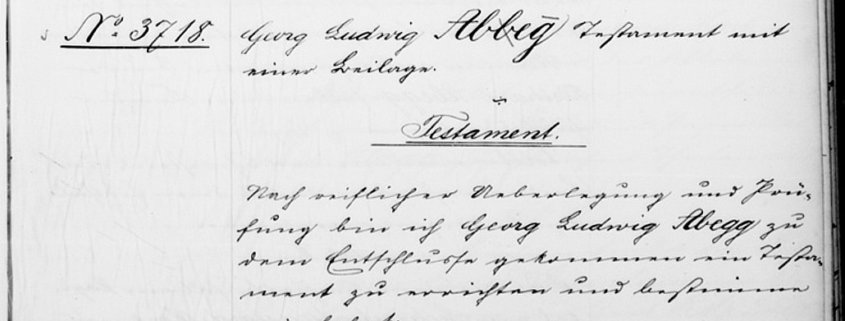 No. 3718. Georg Ludwig Abbeg̅ Testament mit
einer Beilage.
Testament.
Nach reiflicher Ueberlegung und Prü-
fung bin ich Georg Ludwig Abegg zu
dem Entschlusse gekommen ein Testa-
ment zu errichten und bestimme